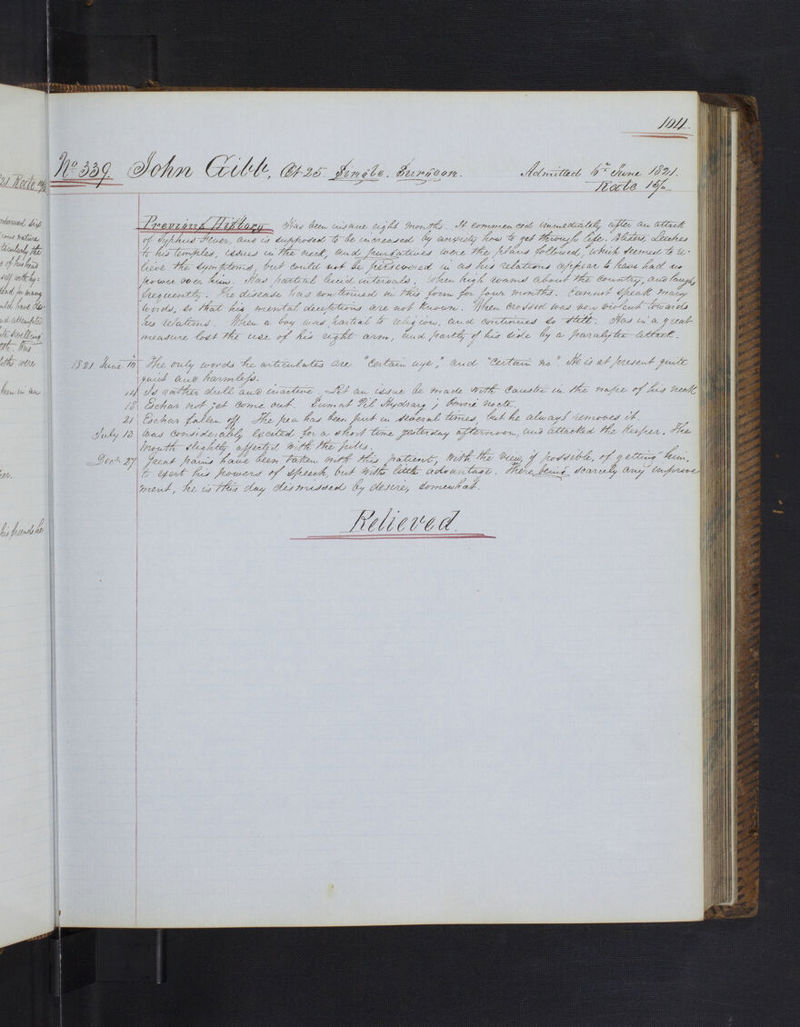 104
No 339. John Gibb, Æt 25 Single. Surgeon. Admitted 6th June 1821.
Rate 15/-
Previous History Has been insane eight months. It commenced immediately after an attack
of Typhus Fever, and is supposed to be increased by anxiety how to get through life. Blisters, Leeches
to his temples, issues in the neck, and purgatives were the plans followed, which seemed to re-
lieve the symptoms, but could not be persevered in as his relations appear to have had no
power over him. Has partial lucid intervals. When high roams about the country, and laughs
frequently. The disease has continued in this form for four months. Cannot speak many
words, so that his mental deceptions are not known. When crossed was very violent towards
his relations. When a boy was partial to religion, and continues so still. Has in a great
measure lost the use of his right arm, and partly of his side by a paralytic attack.
1821 June 10 The only words he articulates are "Certain aye," and "Certain no". He is at present quite
quiet and harmless.
14 Is rather dull and inactive. Let an issue be made with Caustic in the nape of his neck
18 Eschar not yet come out. Sumat Pil Hydrarg j Omni nocte
21 Eschar fallen off. The pea has been put in several times, but he always removes it
July 13 Was considerably excited for a short time yesterday afternoon, and attacked the keeper. The
mouth slightly affected with the pills.
27 Great pains have been taken with this patient, with the view, if possible, of getting him
to exert his powers of speech, but with little advantage. There being scarcely any improve
ment, he is this day dismissed by desire, somewhat.
Relieved.